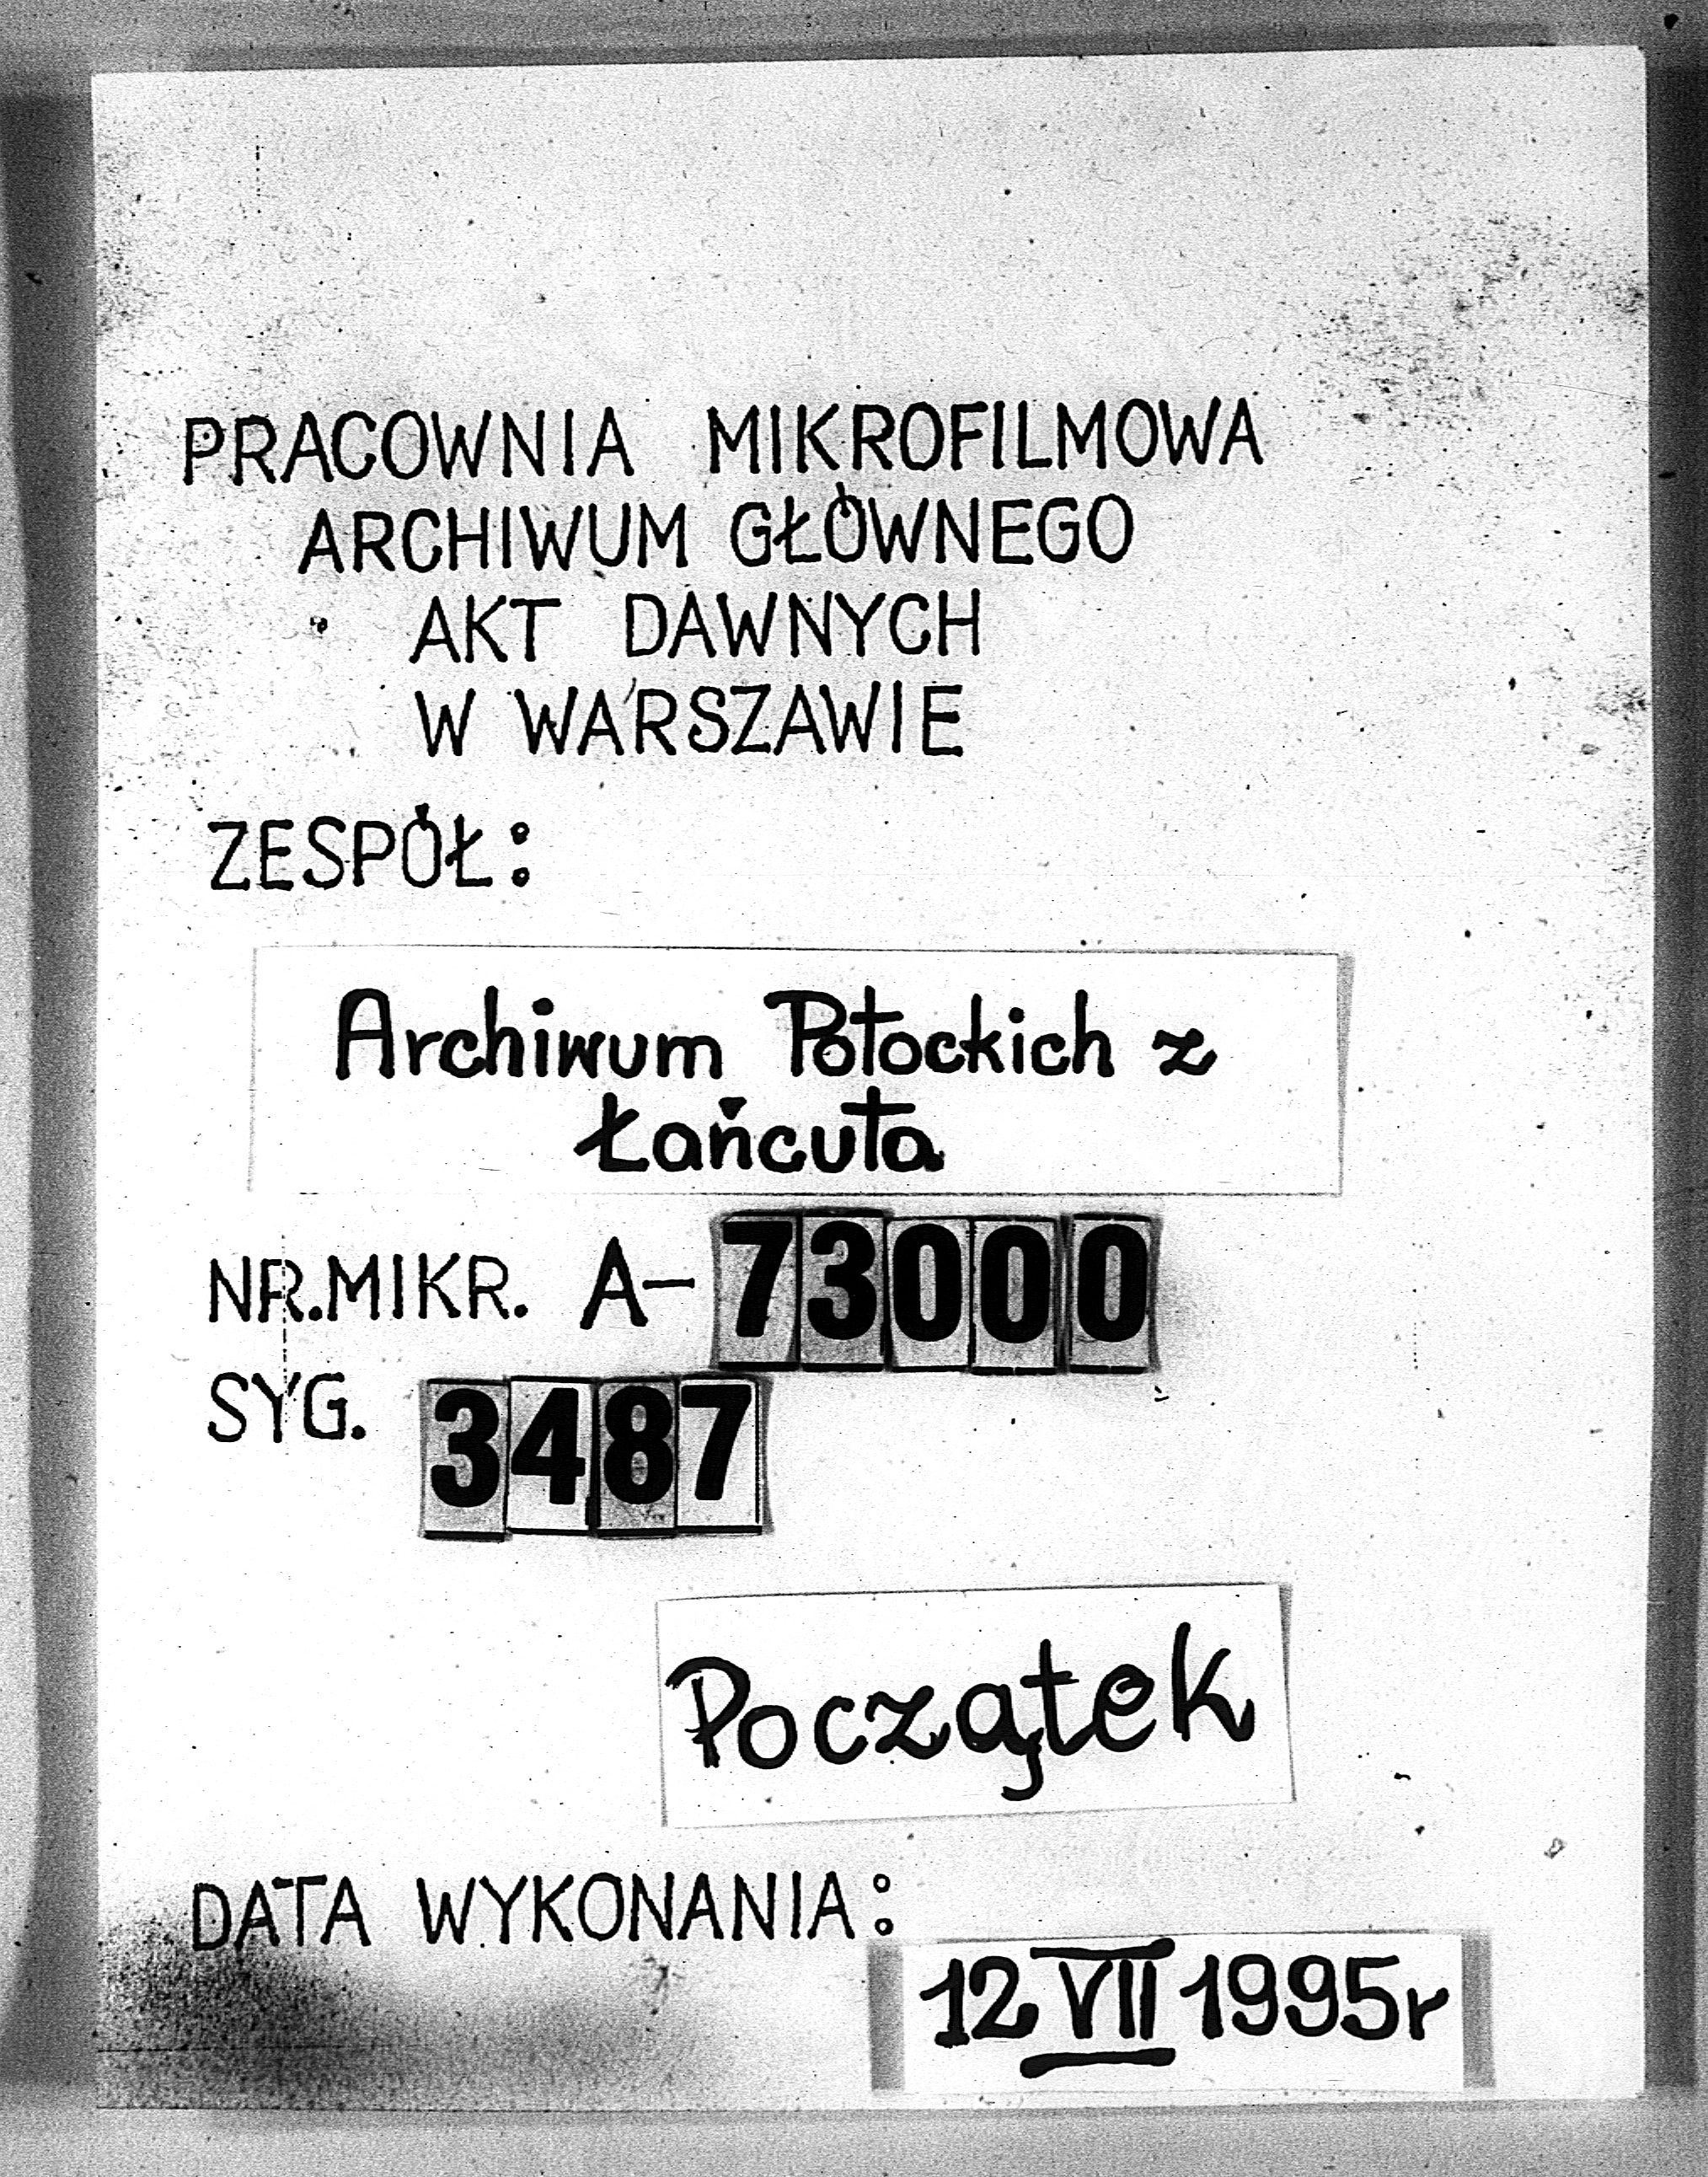 PRACOWNIA MIKROFILMOWA
ARCHIWUM GŁÓWNEGO
AKT DAWNYCH
W WARSZAWIE
ZESPÓŁ:
Archiwum Potockich z
Łańcuta
NR.MIKR. A-73000
SYG. 3487
Początek
DATA WYKONANIA:
12 VII 1995r